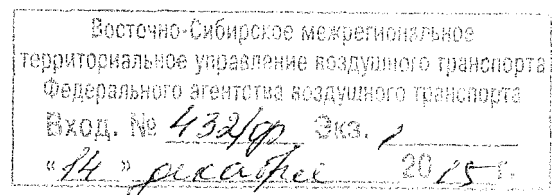 Восточно-Сибирское межрегиональное
территориальное управление воздушного транспорта
Федерального агентства воздушного транспорта
Вход. № 432/ф Экз. 1
"14" декабря 2015 г.